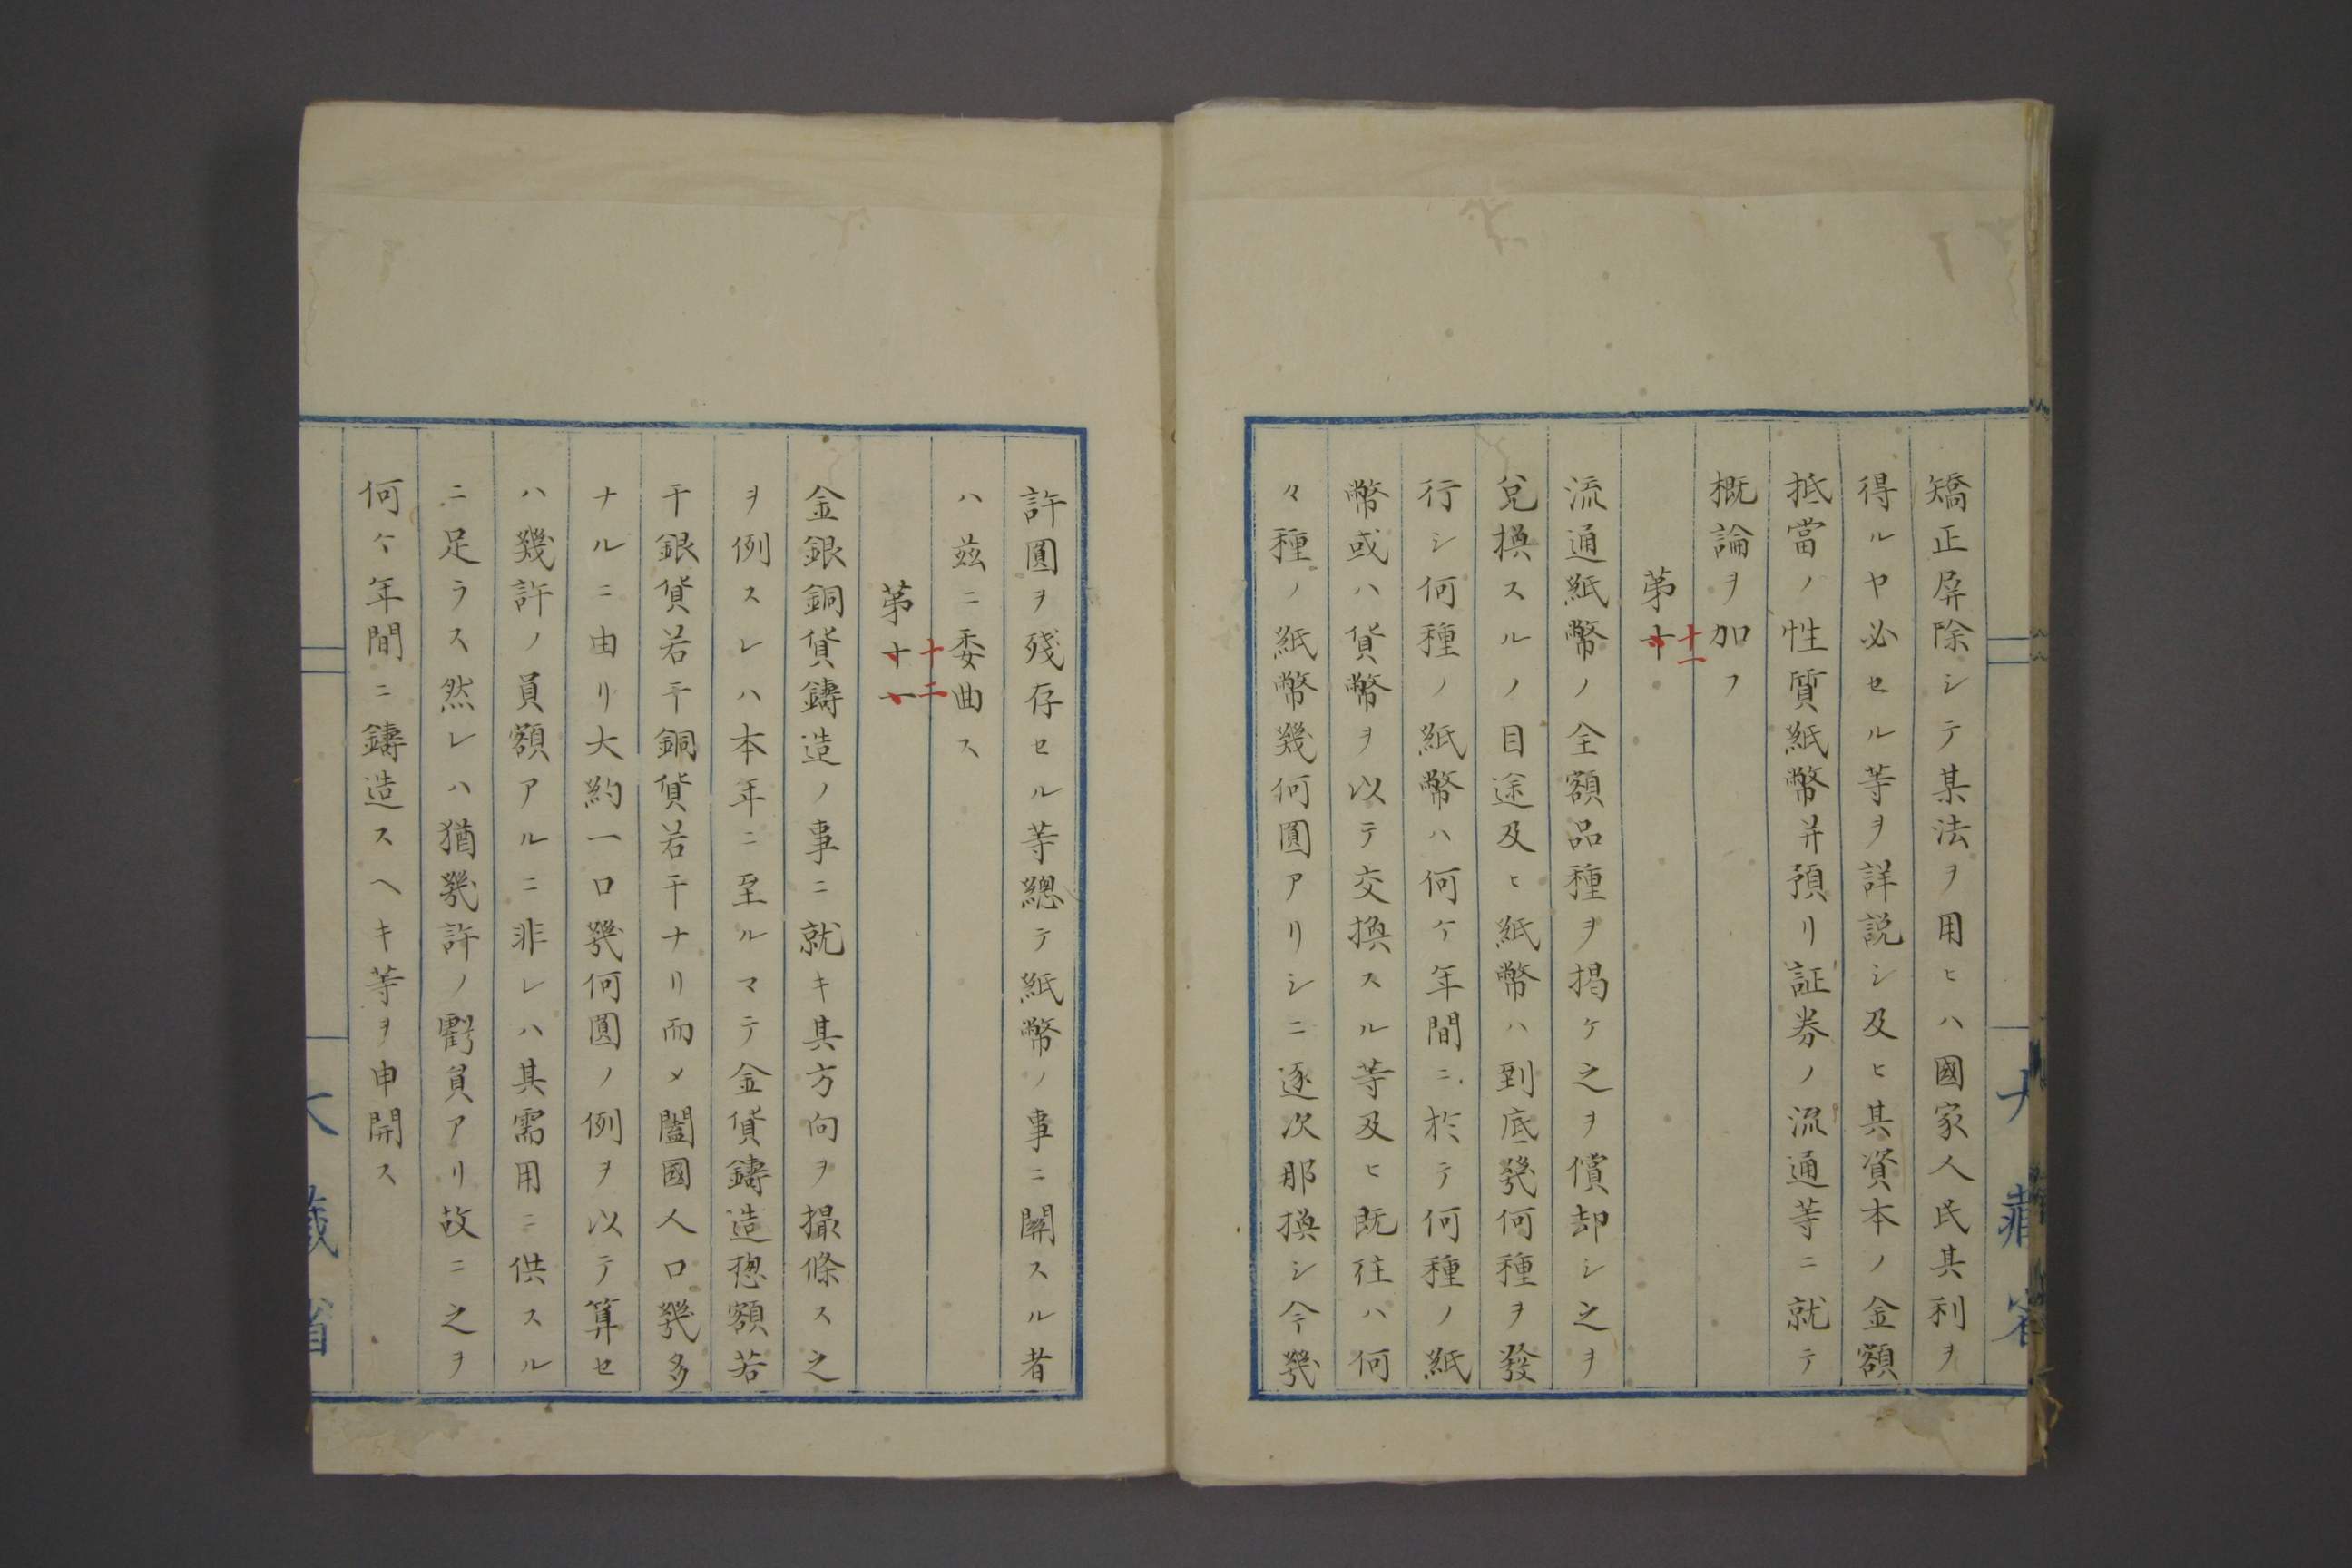 矯正屏除シテ某法ヲ用ヒハ國家人民其利ヲ
得ルヤ必セル等ヲ詳説シ及ヒ其資本ノ金額
抵當ノ性質紙幣并預リ証券ノ流通等ニ就テ
概論ヲ加フ
第十
十一
流通紙幣ノ全額品種ヲ掲ケ之ヲ償却シ之ヲ
兌換スルノ目途及ヒ紙幣ハ到底幾何種ヲ發
行シ何種ノ紙幣ハ何ケ年間ニ於テ何種ノ紙
幣或ハ貨幣ヲ以テ交換スル等及ヒ既往ハ何
々種ノ紙幣幾何圓アリシニ逐次那換シ今幾
大藏省
許圓ヲ殘存セル等總テ紙幣ノ事ニ關スル者
ハ茲ニ委曲ス
第十一
十二
金銀銅貨鑄造ノ事ニ就キ其方向ヲ撮條ス之
ヲ例スレハ本年ニ至ルマテ金貨鑄造摠額若
干銀貨若干銅貨若干ナリ而メ闔國人口幾多
ナルニ由リ大約一口幾何圓ノ例ヲ以テ算セ
ハ幾許ノ員額アルニ非レハ其需用ニ供スル
ニ足ラス然レハ猶幾許ノ虧員アリ故ニ之ヲ
何ケ年間ニ鑄造スヘキ等ヲ申開ス
大藏省